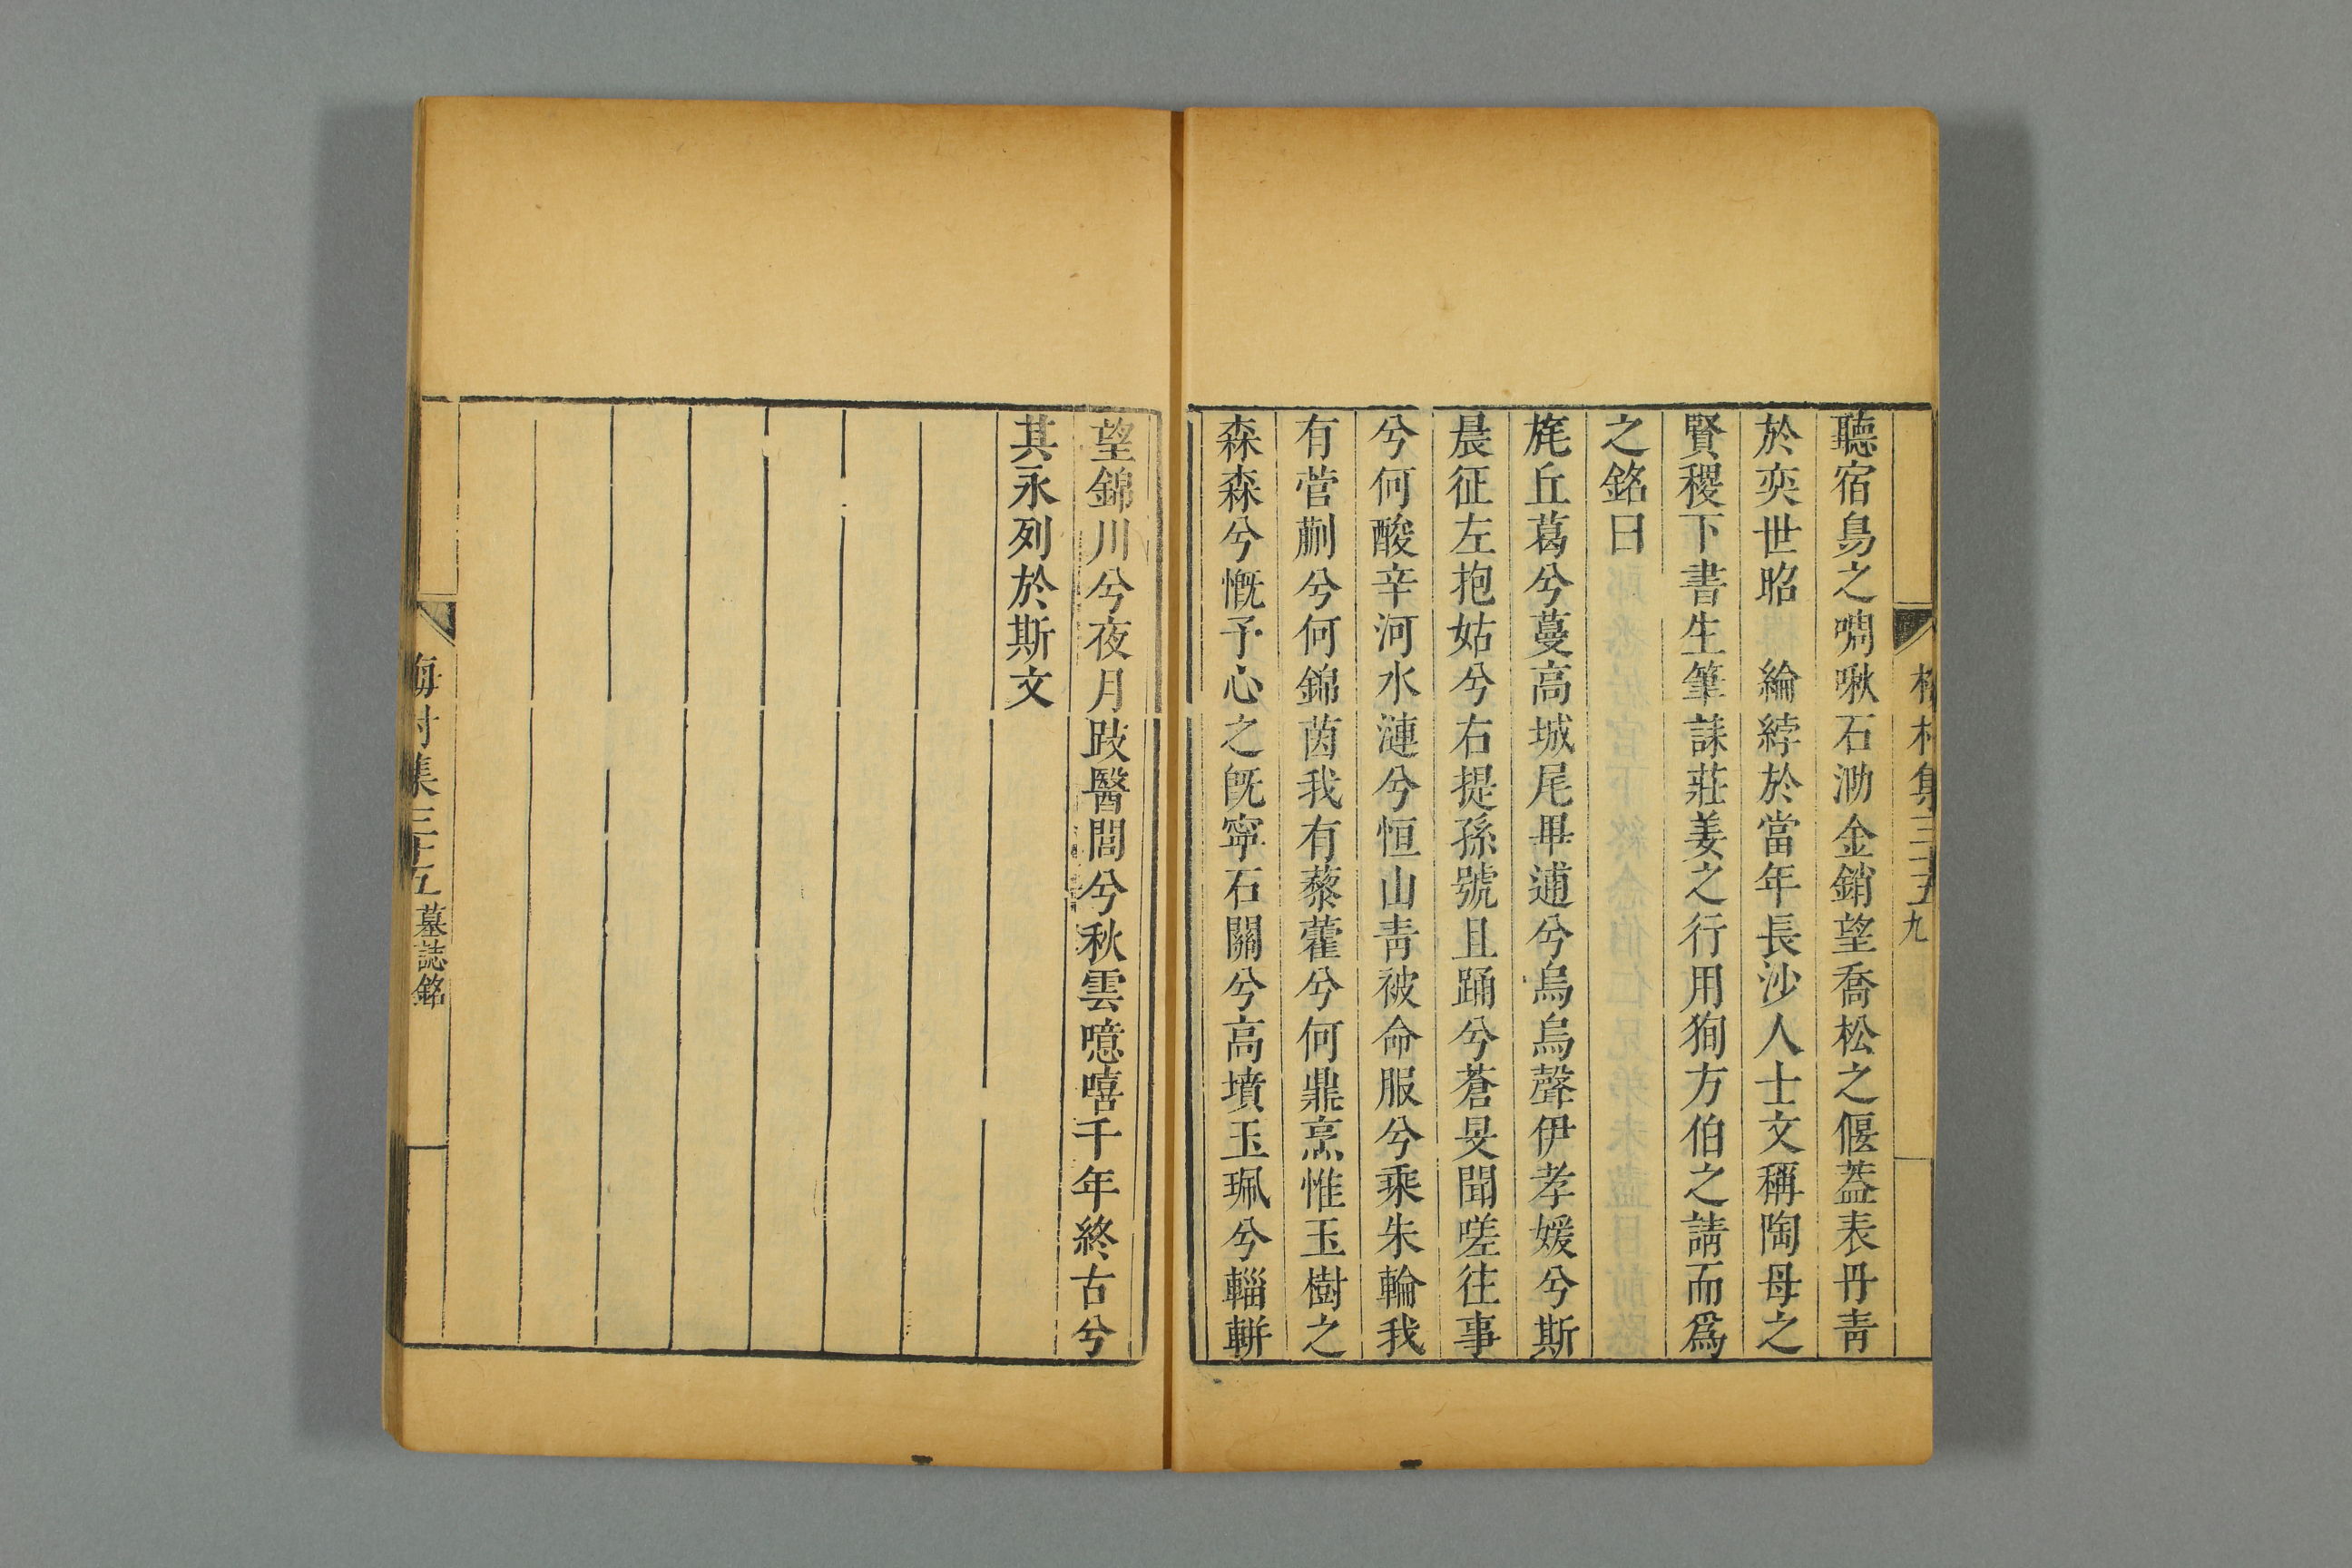 梅村集三十五 九
聽宿鳥之啁啾石泐金銷望喬松之偃蓋表丹青
於奕世昭 綸綍於當年長沙人士文稱陶母之
賢稷下書生筆誄莊姜之行用狥方伯之請而爲
之銘曰
旄丘葛兮蔓高城尾畢逋兮烏烏聲伊孝媛兮斯
晨征左抱姑兮右提孫號且踊兮蒼旻聞嗟往事
兮何酸辛河水漣兮恒山青被命服兮乘朱輪我
有菅蒯兮何錦茵我有藜藿兮何鼎烹惟玉樹之
森森兮慨予心之旣寧石關兮高墳玉珮兮輜軿
望錦川兮夜月跂醫閭兮秋雲噫嘻千年終古兮
其永列於斯文
梅村集三十五 墓誌銘